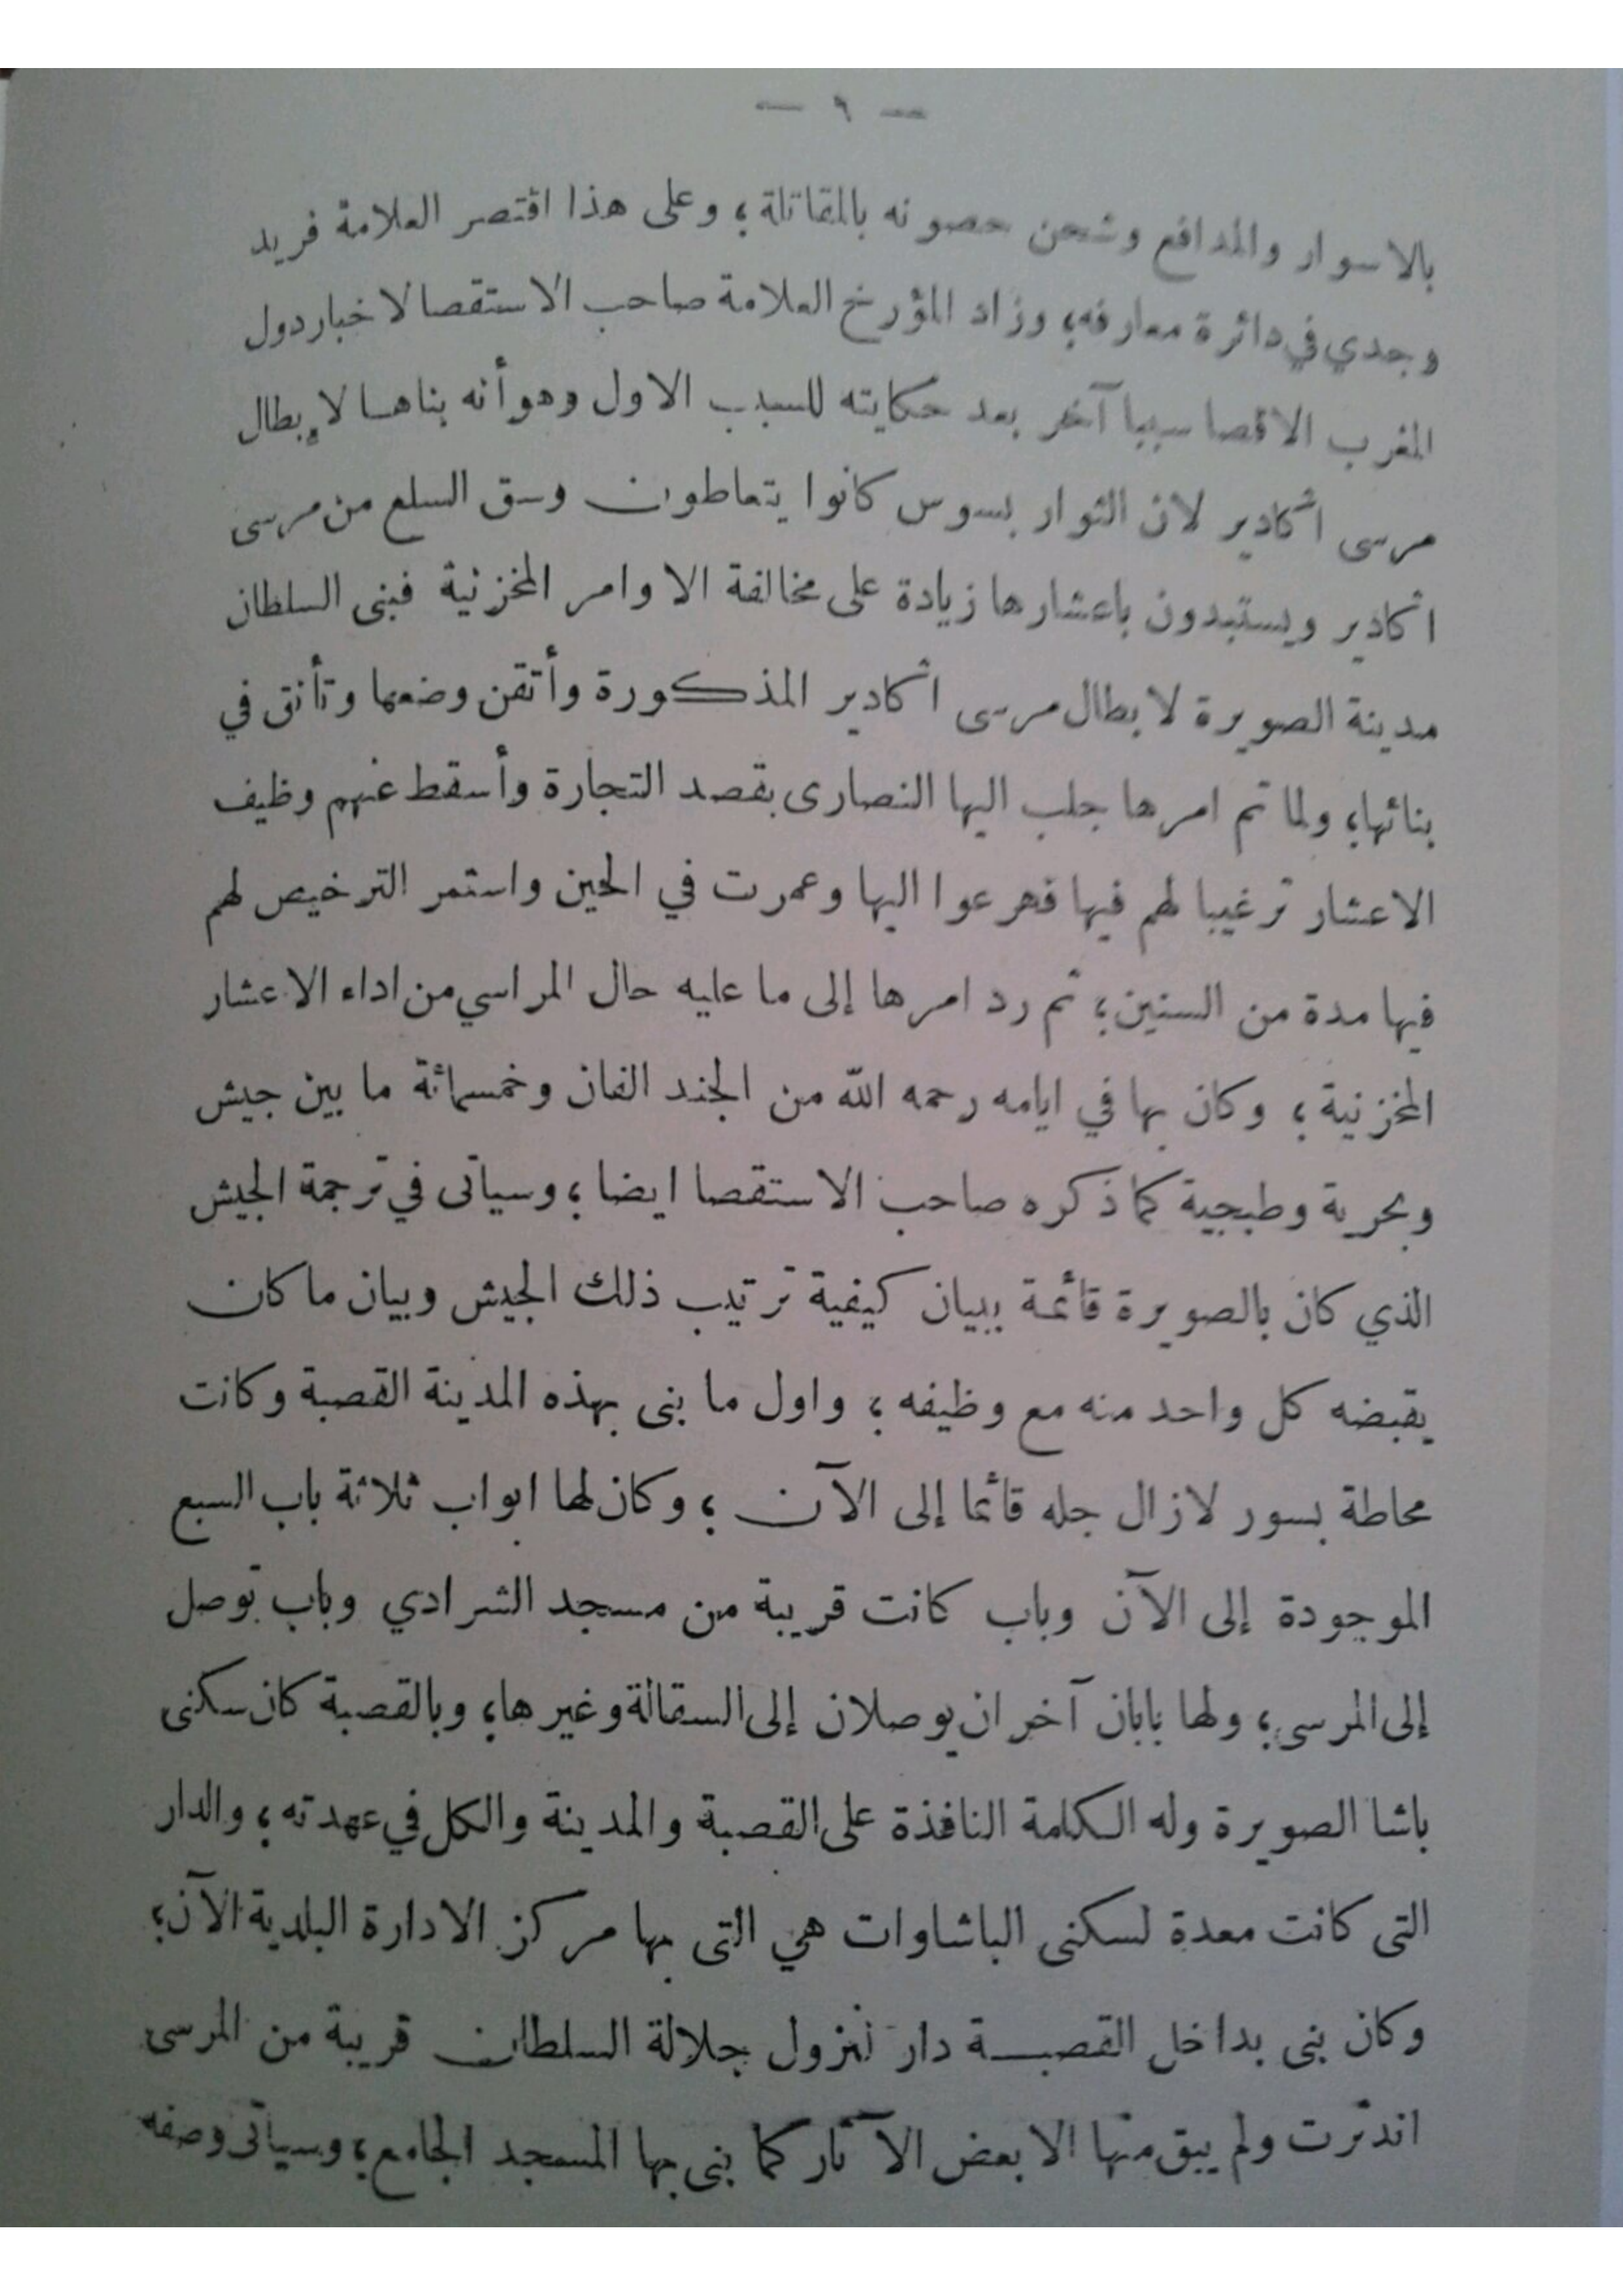 — ٩ —
بالاسوار والمدافع وشحن حصونه بالمقاتلة، وعلى هذا اقتصر العلامة فريد
وجدي في دائرة معارفه، وزاد المؤرخ العلامة صاحب الاستقصا لاخبار دول
المغرب الاقصا سببا آخر بعد حكايته للسبب الاول وهو أنه بناها لإبطال
مرسى اكادير لان الثوار بسوس كانوا يتعاطون وسق السلع من مرسى
اكادير ويستبدون باعشارها زيادة على مخالفة الاوامر المخزنية فبنى السلطان
مدينة الصويرة لابطال مرسى اكادير المذكورة وأتقن وضعها وتأنق في
بنائها، ولما تم امرها جلب اليها النصارى بقصد التجارة وأسقط عنهم وظيف
الاعشار ترغيبا لهم فيها فهرعوا اليها وعمرت في الحين واستمر الترخيص لهم
فيها مدة من السنين، ثم رد امرها إلى ما عليه حال المراسي من اداء الاعشار
المخزنية، وكان بها في ايامه رحمه الله من الجند الفان وخمسمائة ما بين جيش
وبحرية وطبجية كما ذكره صاحب الاستقصا ايضا، وسياتى في ترجمة الجيش
الذي كان بالصويرة قائمة ببيان كيفية ترتيب ذلك الجيش وبيان ما كان
يقبضه كل واحد منه مع وظيفه، واول ما بنى بهذه المدينة القصبة وكانت
محاطة بسور لازال جله قائما إلى الآن، وكان لها ابواب ثلاثة باب السبع
الموجودة إلى الآن وباب كانت قريبة من مسجد الشرادي وباب توصل
إلى المرسى، ولها بابان آخران يوصلان إلى السقالة وغيرها، وبالقصبة كان سكنى
باشا الصويرة وله الكلمة النافذة على القصبة والمدينة والكل في عهدته، والدار
التى كانت معدة لسكنى الباشاوات هي التى بها مركز الادارة البلدية الآن،
وكان بنى بداخل القصبة دار لنزول جلالة السلطان قريبة من المرسى
اندثرت ولم يبق منها الا بعض الآثار كما بنى بها المسجد الجامع، وسياتى وصفه